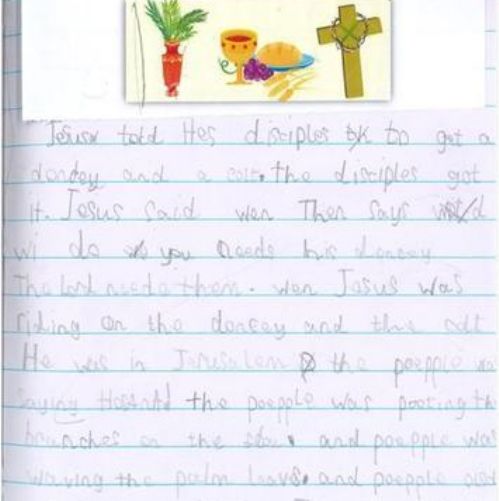 Jesus told Hes disciples to got a
donkey and a colt. the disciples got
it. Jesus Said wen Then Says
wi do you needs his doncey
The lord needs them. wen Jesus was
riding on the doncey and the colt
He was in Jerusalem the poepple
Saying the poepple was pooting th
brunches on the and poepple was
waving the palm leavs. and poepple